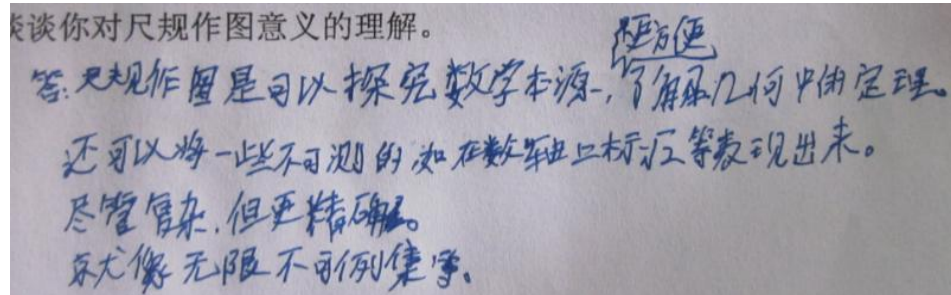 谈谈你对尺规作图意义的理解。
更方便
答:尺规作图是可以探究数学本源,了解几何中的定理。
还可以将一些不可测的,如在数轴上标√2等表现出来。
尽管复杂,但更精确。
就像无限不可列集